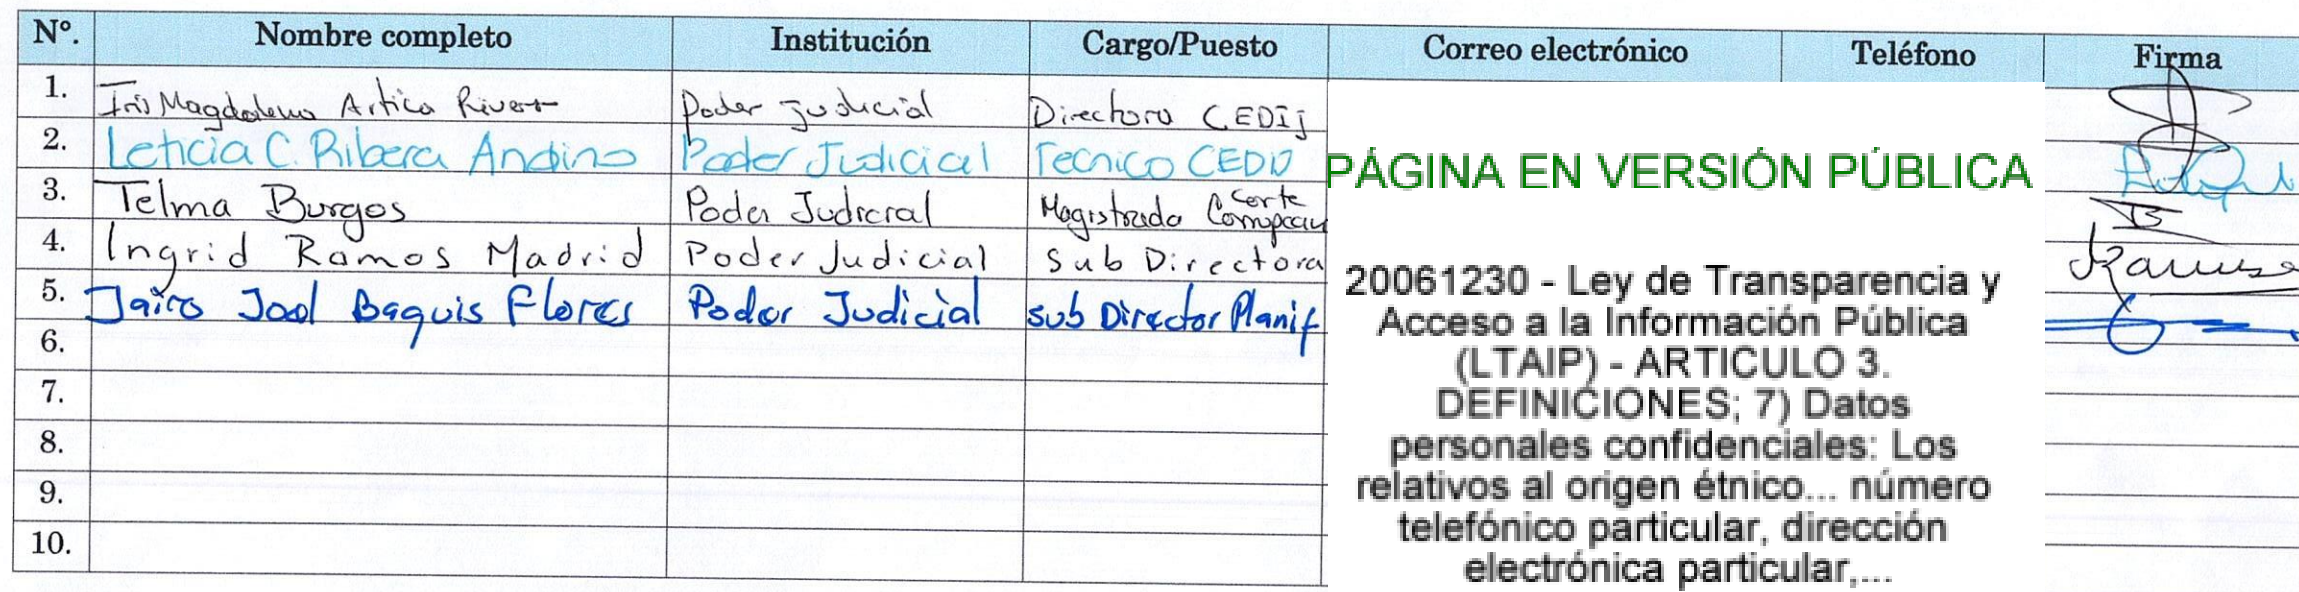 Nº. Nombre completo Institución Cargo/Puesto Correo electrónico Teléfono Firma
1. Iris Magdalena Artica Rivera Poder Judicial Directora CEDIJ
2. Leticia C. Ribera Andino Poder Judicial Tecnico CEDIJ
3. Telma Burgos Poder Judicial Magistrada Corte
4. Ingrid Ramos Madrid Poder Judicial Sub Directora
5. Jairo Joel Baquis Flores Poder Judicial sub Director Planif
6.
7.
8.
9.
10.
PÁGINA EN VERSIÓN PÚBLICA
20061230 - Ley de Transparencia y
Acceso a la Información Pública
(LTAIP) - ARTICULO 3.
DEFINICIONES; 7) Datos
personales confidenciales: Los
relativos al origen étnico... número
telefónico particular, dirección
electrónica particular,...